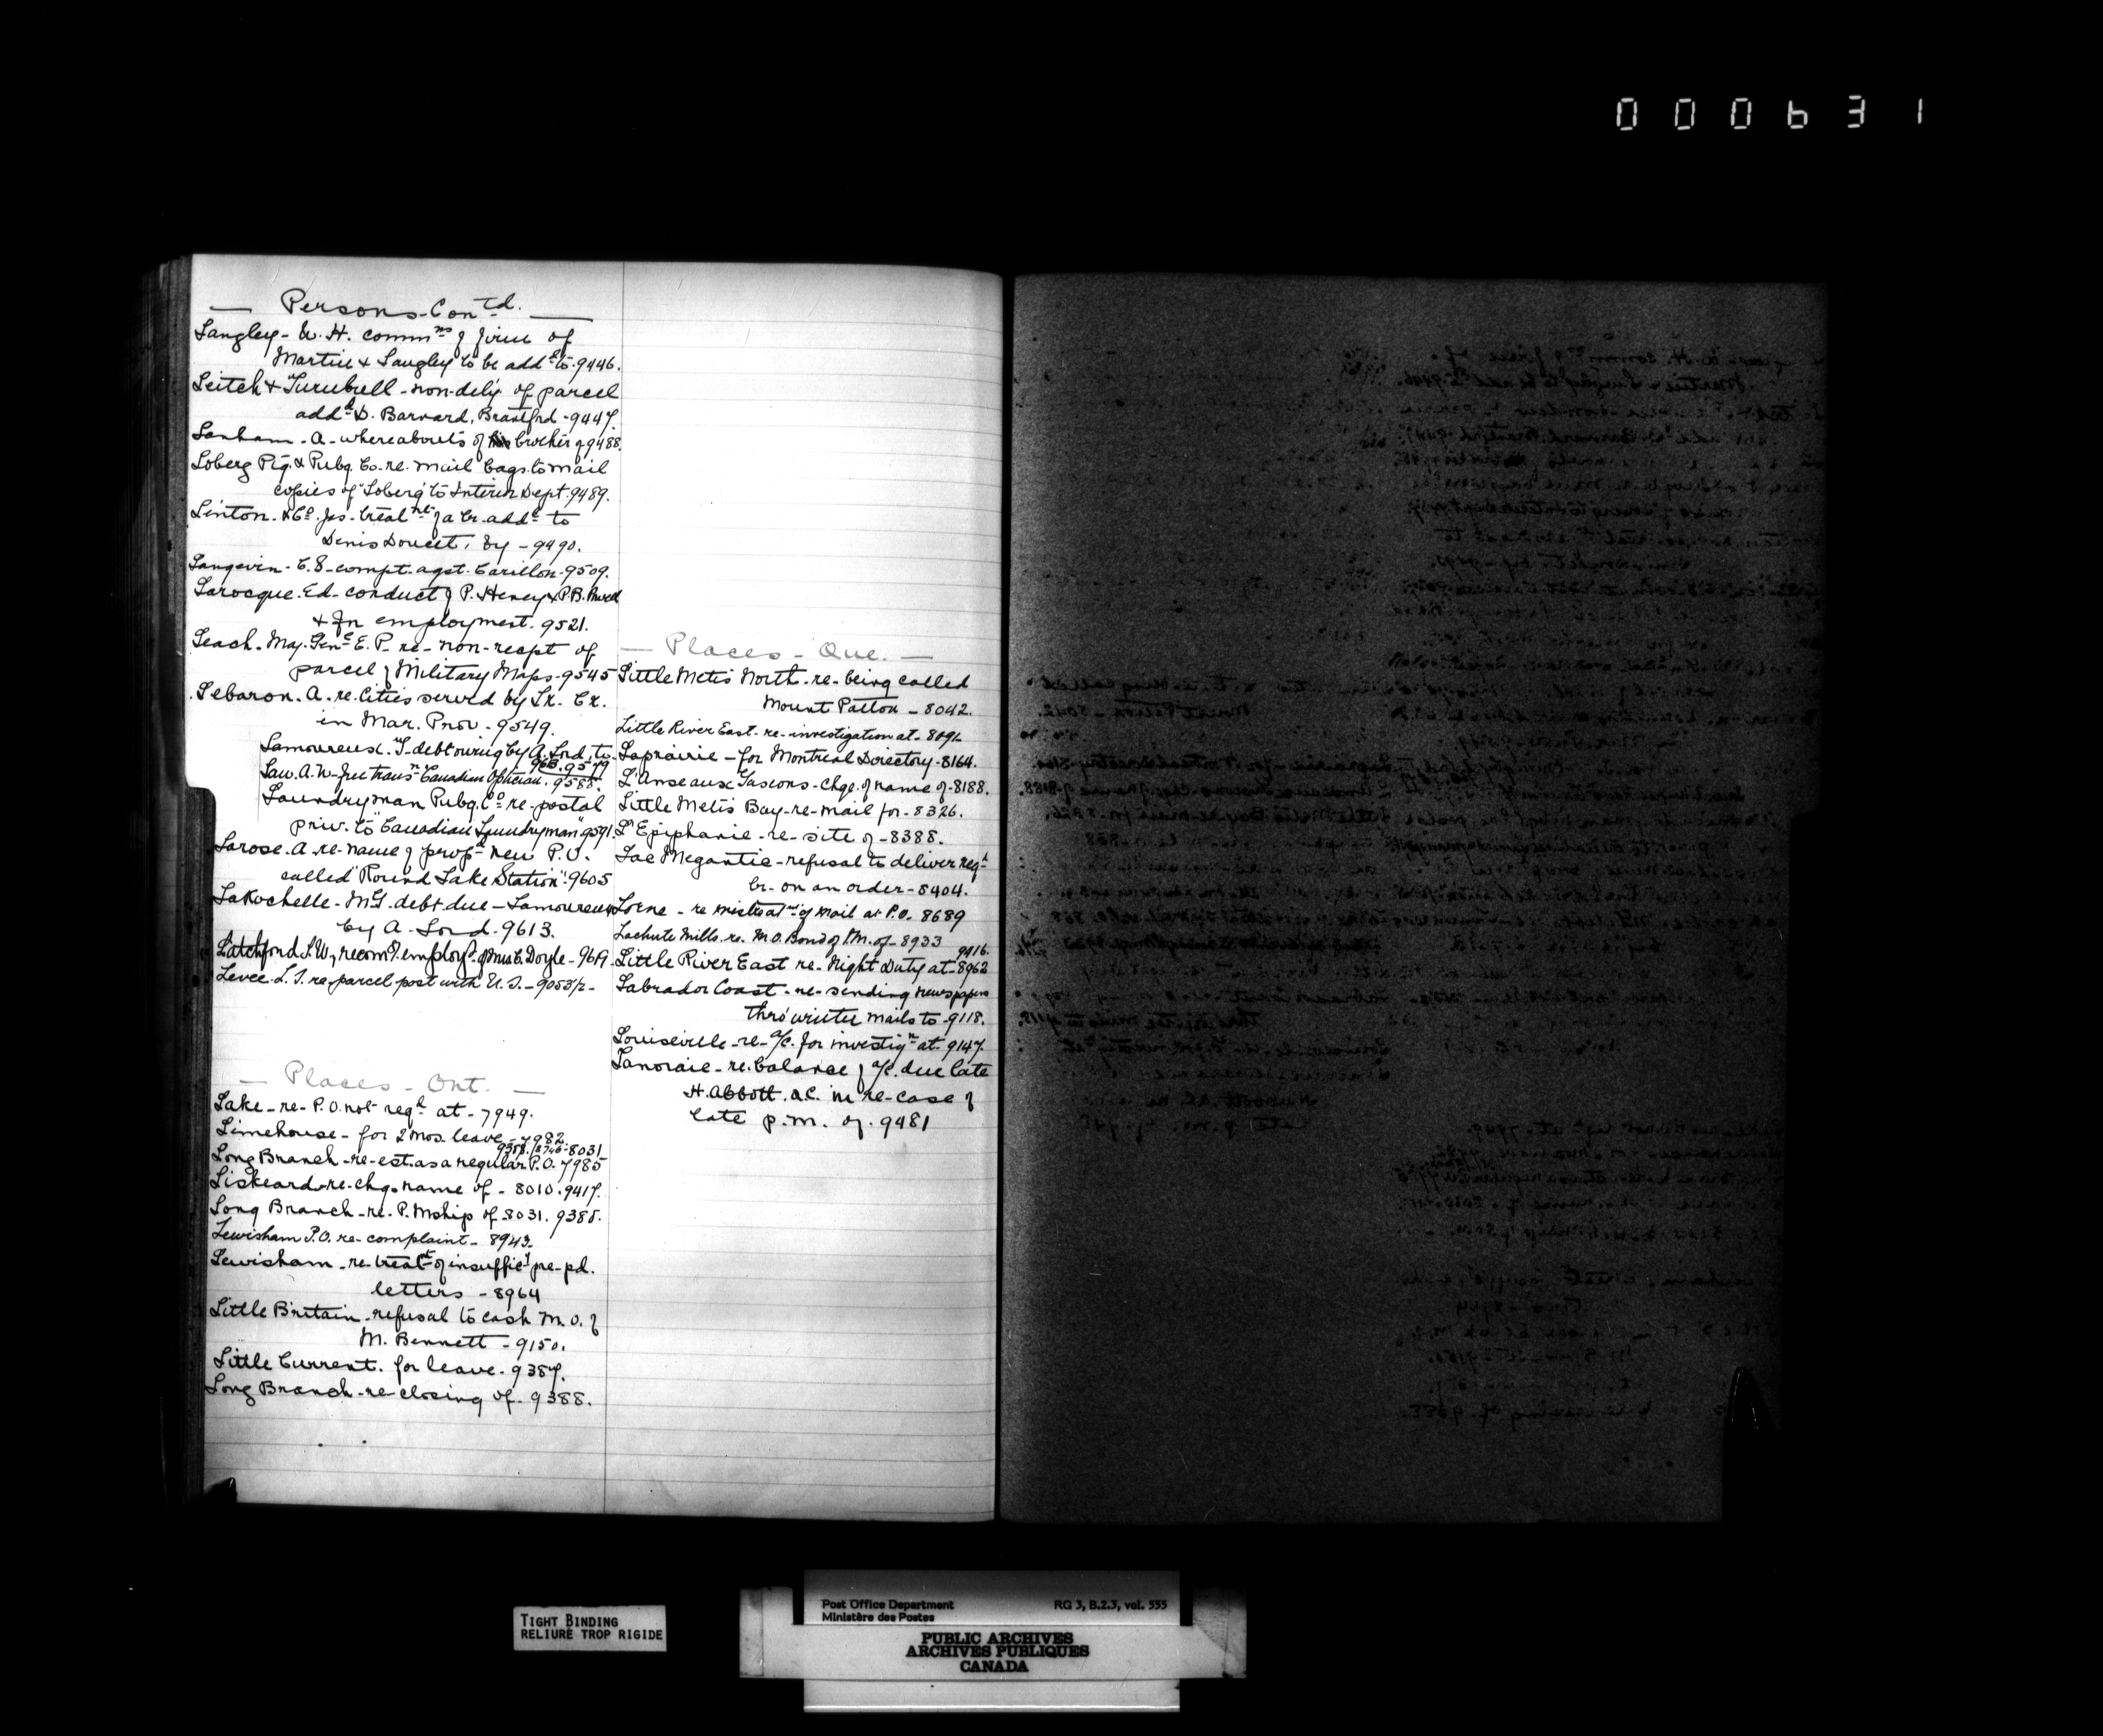 000631
— Persons Contd. —
Langley - W. H. commns of firm of
Martin & Langley to be addd to - 9446.
Leitch & Turnbull - non-dely of parcel
addd D. Barnard, Brantford - 9447.
Lanham - A - whereabouts of brother of 9488.
Loberg Ptg. & Pubg. Co. re mail bags to mail
copies of "Loberg" to Interior Dept. 9489.
Linton & Co. Jas. treatmt of a lr. addd to
Denis Doucet, by - 9490.
Langevin - C. S. - compt. agst. Carillon - 9509.
Larocque. Ed - conduct of P. Heney & P.B.
& employment. 9521.
Leach. Maj. Genl E. P. re - non-recpt of
parcel of Military Maps - 9545
Lebaron. A. re. Cities served by Lr. Cr.
in Mar. Prov. - 9549.
Lamoureux. T - debt owing by A. Lord, to
9613. 9579
Law. A. W - free transn "Canadian Optician". 9588.
Laundryman Pubg. Co re postal
priv. to "Canadian Laundryman" 9591.
Larose. A - re - name of propd new P.O.
called "Round Lake Station" - 9605
LaRochelle - M. T. debt due - Lamoureux
by A. Lord - 9613.
Latchford. F. W, recomg employt of Miss E. Doyle - 9619.
Levee. L. T. re. parcel post with U. S. - 9053/2 -
— Places - Ont. —
Lake - re - P.O. not reqd at - 7949.
Limehouse - for 2 Mos. leave - 7982.
9388. 8746 - 8031
Long Branch - re - est. as a regular P.O. 7985
Liskeard - re - chg. name of - 8010. 9417.
Long Branch - re - P. Mship of - 8031. 9388.
Lewisham P.O. re - complaint - 8943 -
Lewisham - re treatt of insufficy pre-pd.
letters - 8964
Little Britain - refusal to cash M. O. of
M. Bennett - 9150.
Little Current. for leave - 9387.
Long Branch - re - closing of - 9388.
— Places - Que. —
Little Metis North - re - being called
Mount Patton - 8042.
Little River East - re - investigation at - 8091
Laprairie - for Montreal Directory - 8164.
L'Anse aux Gascons - chge. of name of - 8188.
Little Metis Bay - re - mail for - 8326.
L'Epiphanie - re - site of - 8388.
Lac Megantic - refusal to deliver regd
lr - on an order - 8404.
Lorne - re mistreatmt of mail at P.O. 8689
Lachute Mills - re. M.O. Bond of P.M. of - 8933
9416.
Little River East re - Night Duty at - 8962
Labrador Coast - re - sending newspapers
thro' winter mails to - 9118.
Louiseville - re - a/c. for investign at - 9147.
Lanoraie - re. balance of a/c. due late
H. Abbott. a.c. in re - case of
late p.m. of. 9481
TIGHT BINDING
RELIURE TROP RIGIDE
Post Office Department RG 3, B.2.3, vol. 555
Ministère des Postes
PUBLIC ARCHIVES
ARCHIVES PUBLIQUES
CANADA